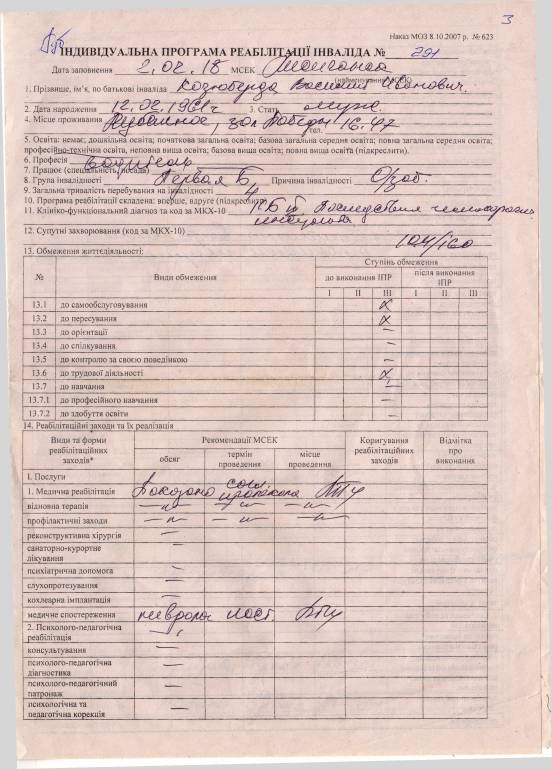 3
Наказ МОЗ 8.10.2007 р. № 623
ІНДИВІДУАЛЬНА ПРОГРАМА РЕАБІЛІТАЦІЇ ІНВАЛІДА № 291
Дата заповнення 2.02.18 МСЕК
1. Прізвище, ім'я, по батькові інваліда Василий Иванович.
2. Дата народження 12.02.1961г 3. Стать муж.
4. Місце проживання Рубежное, Победы 16-47
тел.
5. Освіта: немає; дошкільна освіта; початкова загальна освіта; базова загальна середня освіта; повна загальна середня освіта;
професійно-технічна освіта, неповна вища освіта; базова вища освіта; повна вища освіта (підкреслити).
6. Професія водитель
7. Працює (спеціальність, посада)
8. Група інвалідності Первая Б Причина інвалідності О/заб.
9. Загальна тривалість перебування на інвалідності 4
10. Програма реабілітації складена: вперше, вдруге (підкреслити)
11. Клінiко-функціональний діагноз та код за МКХ-10) Последствия
инсульта
12. Супутні захворювання (код за МКХ-10)
13. Обмеження життєдіяльності:
№ Види обмеження Ступінь обмеження
до виконання ІПР після виконання ІПР
I II III I II III
13.1 до самообслуговування х
13.2 до пересування х
13.3 до орієнтації –
13.4 до спілкування –
13.5 до контролю за своєю поведінкою –
13.6 до трудової діяльності х
13.7 до навчання –
13.7.1 до професійного навчання –
13.7.2 до здобуття освіти –
14. Реабілітаційні заходи та їх реалізація
Види та форми реабілітаційних заходів* Рекомендації МСЕК Коригування реабілітаційних заходів Відмітка про виконання
обсяг термін проведення місце проведення
1. Послуги
1. Медична реабілітація Показано согл. протокола ЛПУ
відновна терапія –"– –"– –"–
профілактичні заходи –"– –"– –"–
реконструктивна хірургія –
санаторно-курортне лікування –
психіатрична допомога –
слухопротезування –
кохлеарна імплантація –
медичне спостереження невролог пост. ЛПУ
2. Психолого-педагогічна реабілітація –
консультування –
психолого-педагогічна діагностика –
психолого-педагогічний патронаж –
психологічна та педагогічна корекція –